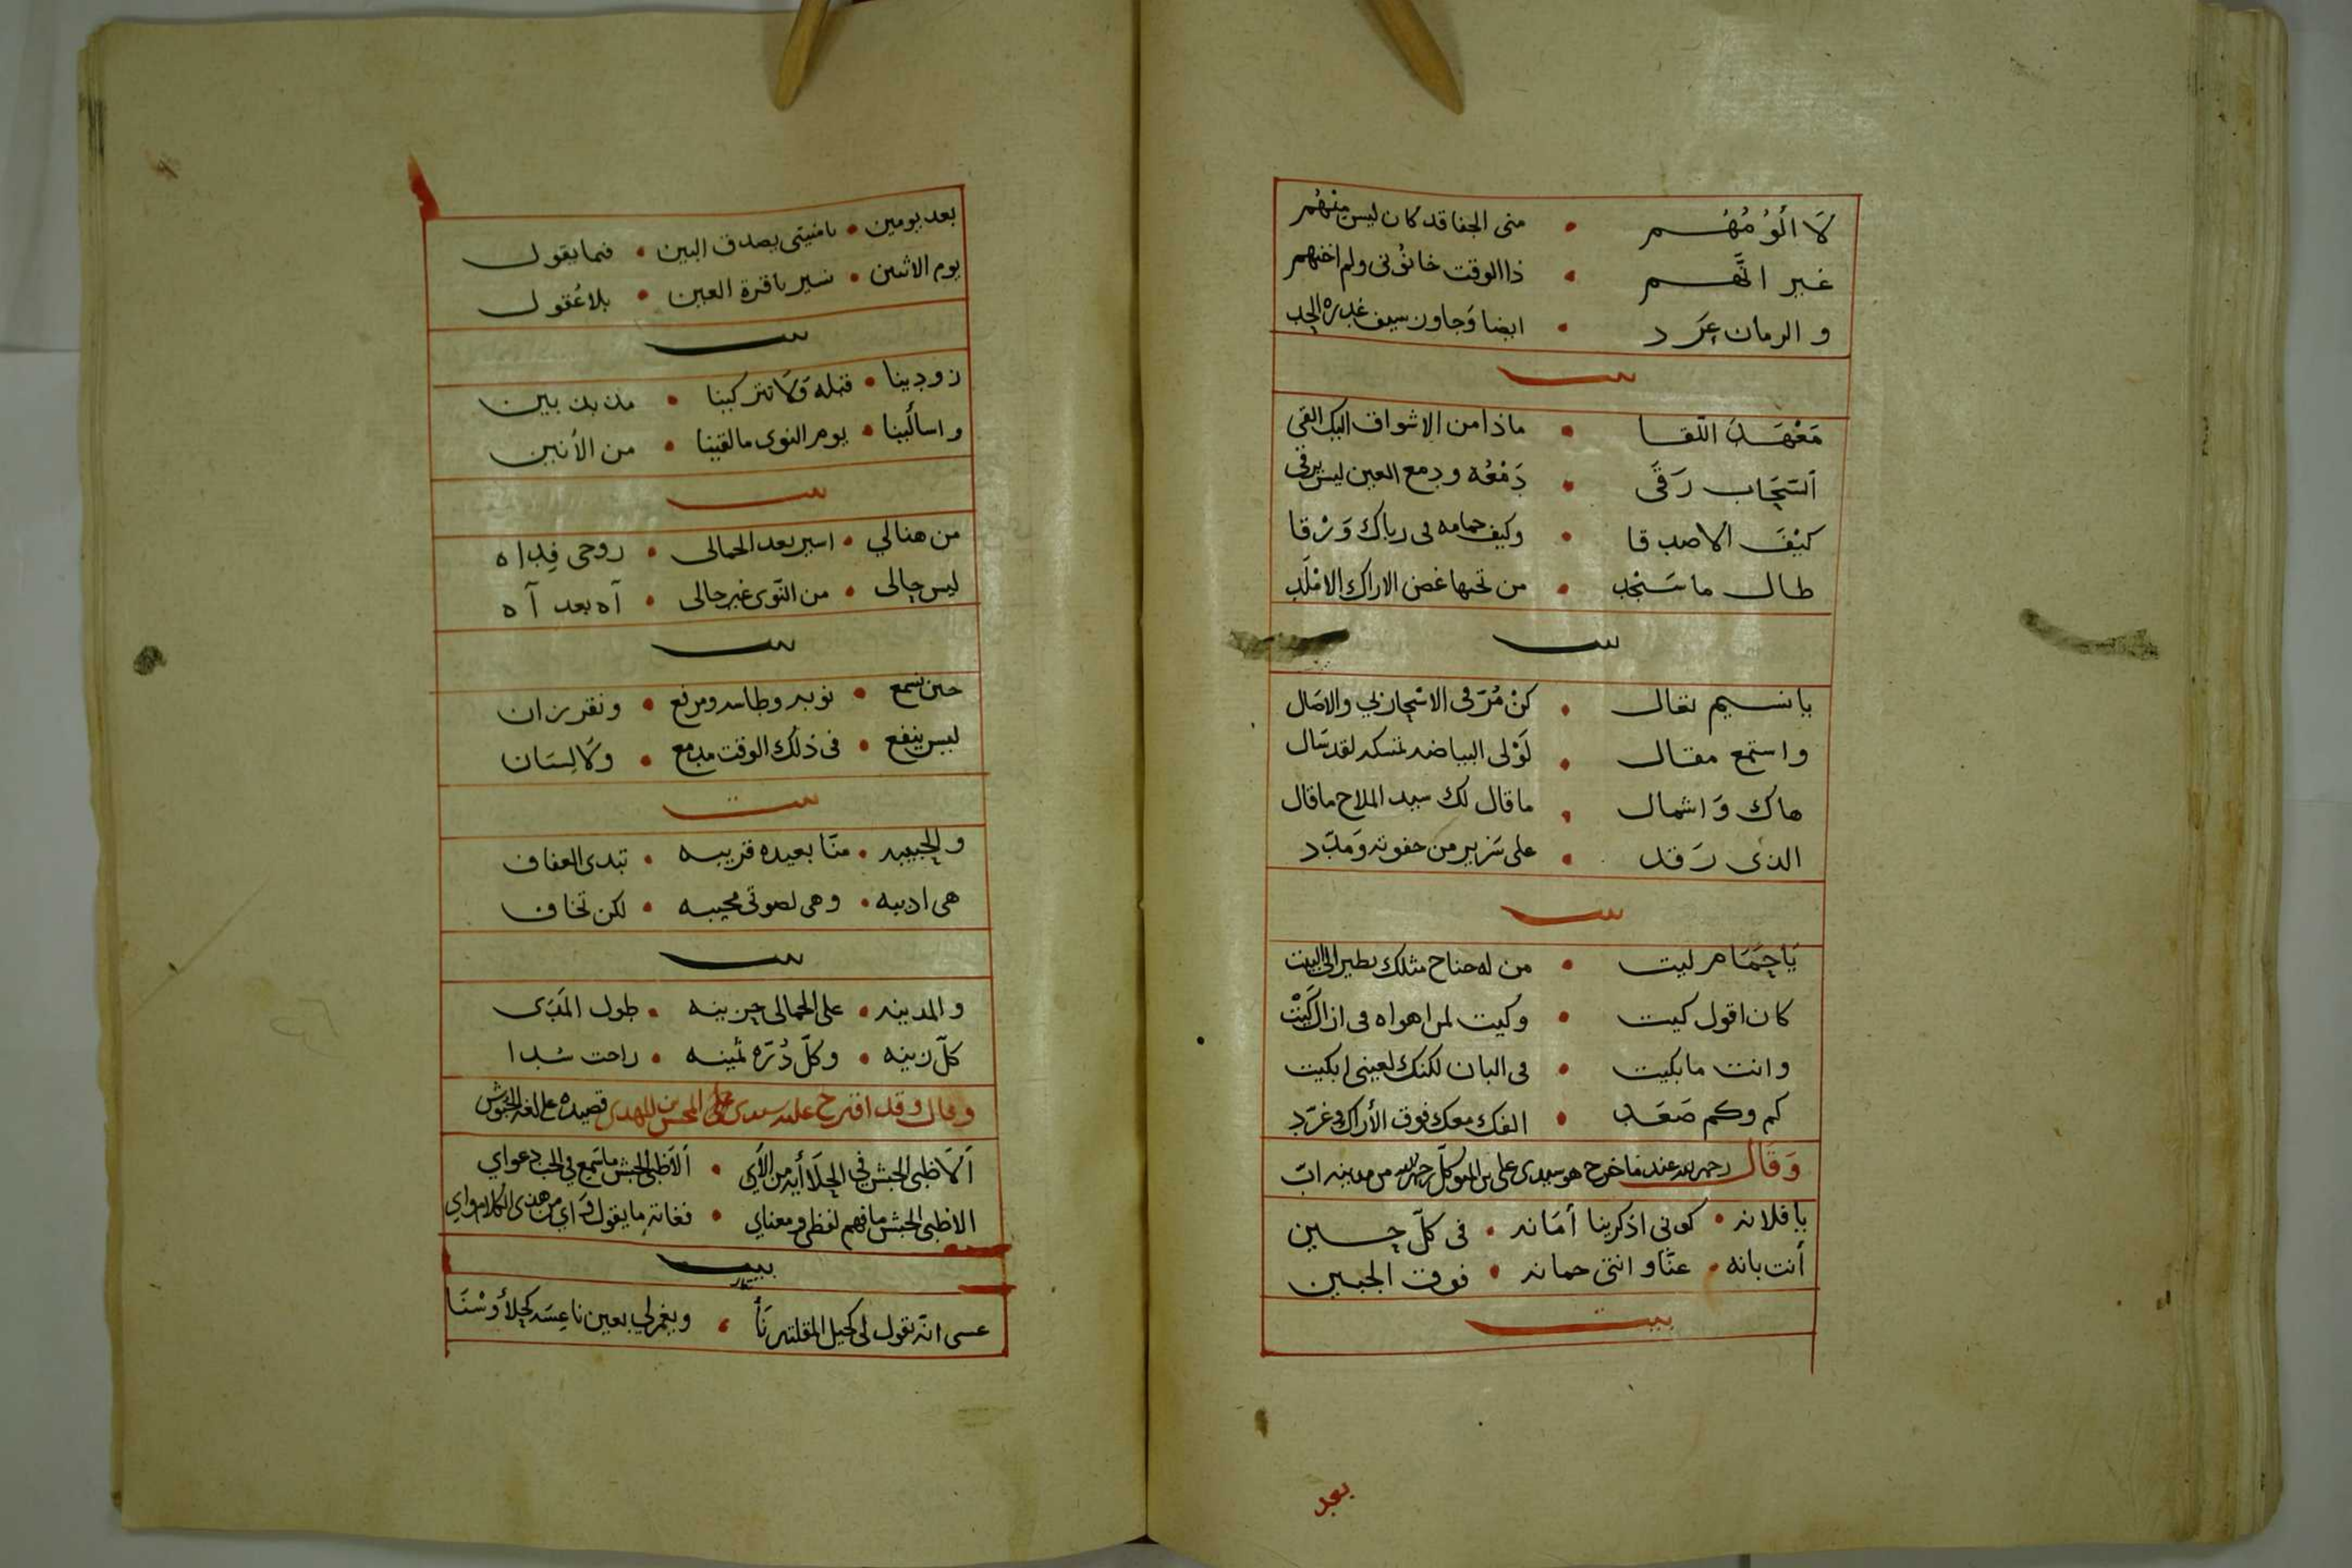 لَا الُوْمُهُم • منى الجفا قد كان ليس منهم
غير انهم • ذا الوقت خانونى ولم اخنهم
و الزمان عرّد • ايضا وجاوز سيف غدره الحد
بيت
مَعْهَدَ النّقا • ماذا من الاشواق اليك القى
السّحاب رَقَى • دَمْعُه ودمع العين ليس يرقى
كيْفَ الاصدقا • وكيف حمامه فى رباك وَرْقا
طال ما سَنْجد • من تحتها غصن الاراك الامْلَد
بيت
يا نسيم تعال • كنْ مُرّ فى الاسْحار لي والاصال
واستمع مقال • لَوْلى البياضه تمسكه لقد سال
هاك وَاشمال • ما قال لك سيد الملاح ما قال
الذى رَقد • على سَرير من جفونه ومَلبّد
بيت
يَا حَمَام ليت • من له جناح مثلك يطير الى البيت
كان اقول كيت • وكيت لمن اهواه فى ازال كَيْت
وانت ما بكيت • فى البان لكنك لعينى ابكيت
كم وكم صَعَد • الفك معك فوق الأراك وغرّد
وَقال رحمه الله عندما خرج هو سيدى على بن المتوكل رحمه الله من مدينه ابّ
يا فلانه • كونى اذكرينا أمَانه • فى كلّ حين
أنت بانه • عنّا وانتى حمانه • فوق الجبين
بيت
بعد
بعد يومين • يا منيتى يصدق البين • فما يقول
يوم الاثنين • نسير يا قرة العين • بلا عُقول
بيت
زودينا • قبله وَلَا تتركينا • مذبذبين
واسألينا • يوم النوى ما لقينا • من الأنين
بيت
من هنالي • اسير بعد الجمالى • روحى فِداه
ليس حالى • من النّوى غير حالى • آه بعد آه
بيت
حين نسمع • نوبه وطاسه ومرفع • ونقرزان
ليس ينفع • فى ذلك الوقت مدمع • وَلَا لِسَان
بيت
والحبيبه • منّا بعيده قريبه • تبدى العفاف
هى اديبه • وهى لصوتى مجيبه • لكن تخاف
بيت
والمدينه • على الجمالى حزينه • طول المَدَى
كلّ زينه • وكلّ دُرّه ثمينه • راحت سُدا
وقال وقد اقترح عليه سيدى على المحسن بن المهدى قصيده على لغة الحبوش
ألَا ظبى الحبش • ألَا ظبى الحبش ما تسمع في الحب دعواي
الا ظبى الحبش ما فهم لفظى ومعناي • فغانه ما يقول وَاي من هذى الكلام واي
بيت
عسى انّه تقول لى كحيل المقلتين نَأ • ويغمزلي بعين ناعِسَه كحلا وَسْنَا